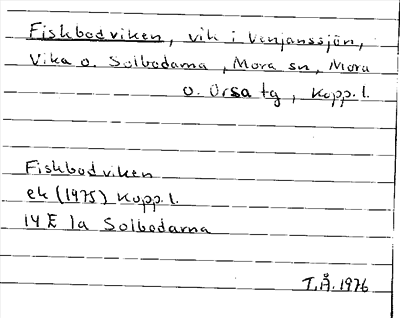 Fiskbodviken, vik i Venjanssjön,
Vika o. Solbodarna, Mora sn, Mora
o. Orsa tg, Kopp. l.
Fiskbodviken
ek (1975) Kopp. l.
14 E 1a Solbodarna
T.Å. 1976